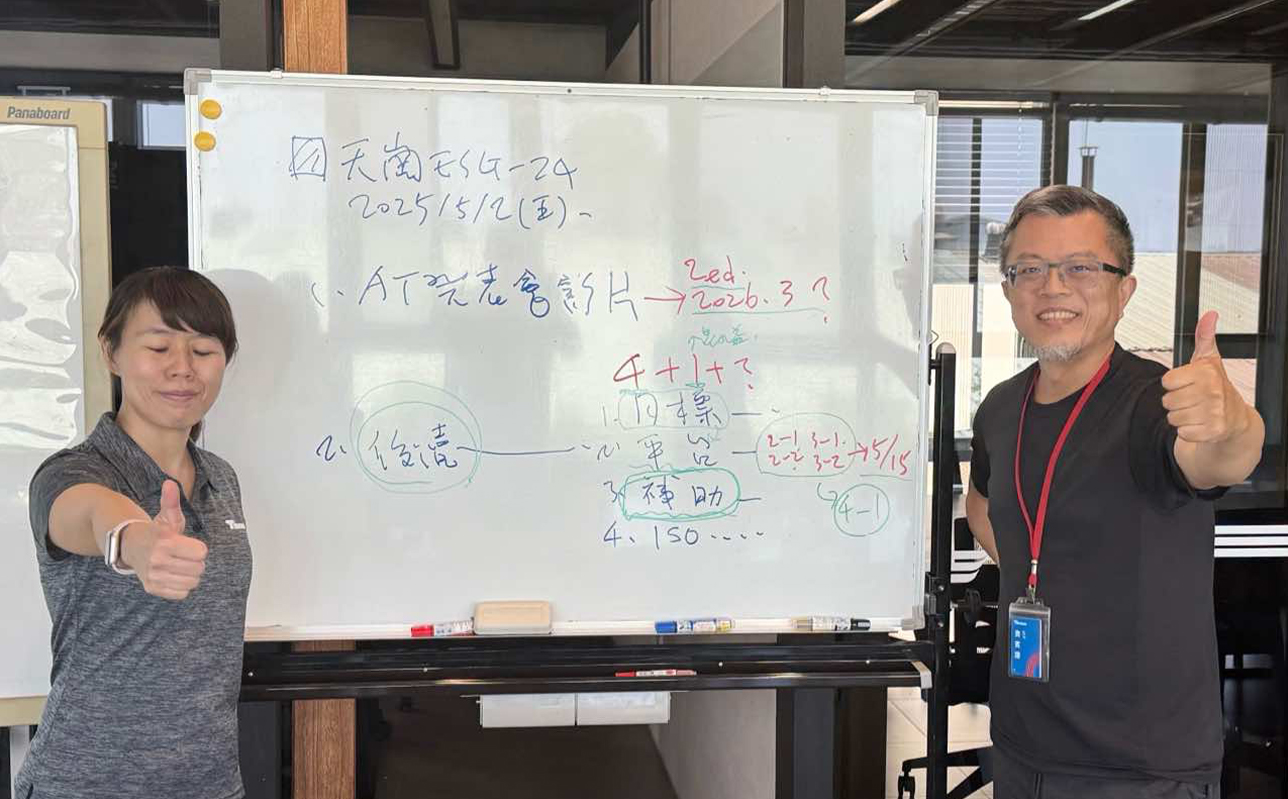 Panaboard
天崗ESG-24
2025/5/2(五)
1. AT發表會影片→2ed. 2026.3?
4+1+?
1. 目標 —
2. 後續 — 2. 平台 — 2-1 3-1. 2-2 3-2 → 5/15
3. 補助 —
4-1
4. 150....